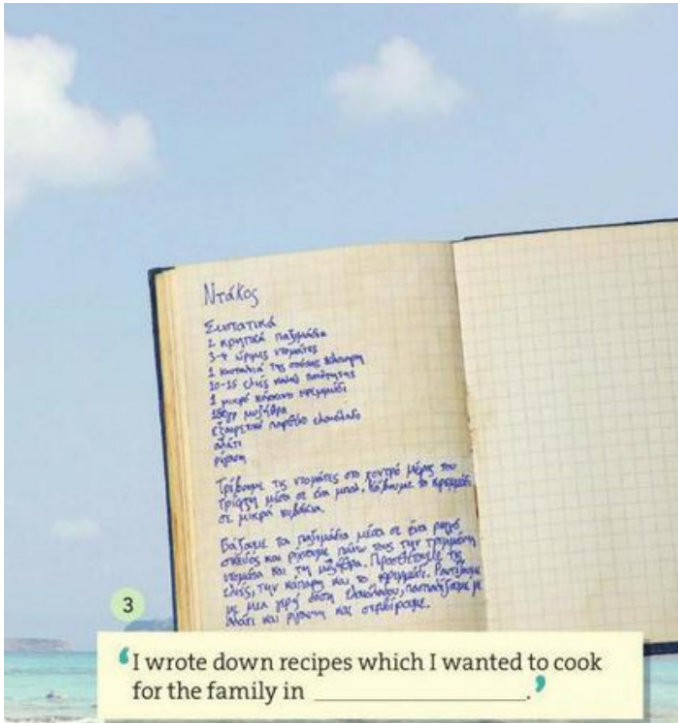 Ντάκος
Συστατικά
2 κρητικά παξιμάδια
3-4 ώριμες ντομάτες
1 κουταλιά της σούπας κάπαρη
10-15 ελιές καλής ποιότητας
1 μικρό κόκκινο κρεμμύδι
γρ μυζήθρα
εξαιρετικό παρθένο ελαιόλαδο
αλάτι
ρίγανη
Τρίβουμε τις ντομάτες στο χοντρό μέρος του
τρίφτη μέσα σε ένα μπολ. Κόβουμε το κρεμμύδι
σε μικρά κυβάκια.
Βάζουμε τα παξιμάδια μέσα σε ένα ρηχό
σκεύος και ρίχνουμε πάνω τους την τριμμένη
ντομάτα και τη μυζήθρα. Προσθέτουμε τις
ελιές, την κάπαρη και το κρεμμύδι. Ραντίζουμε
με μια γερή δόση ελαιόλαδου, πασπαλίζουμε με
αλάτι και ρίγανη και σερβίρουμε.
3
‘I wrote down recipes which I wanted to cook
for the family in ____________________.’